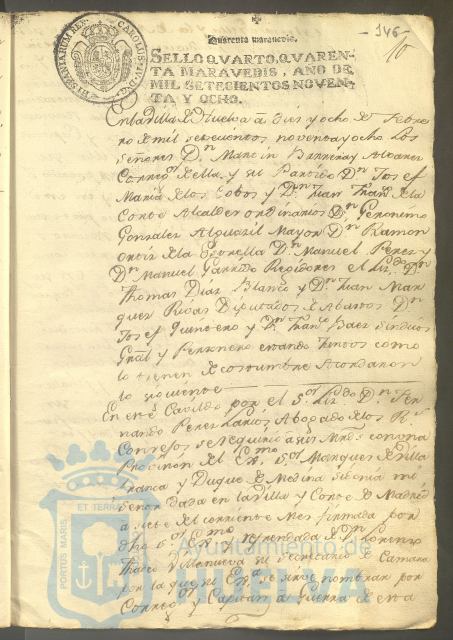 146
10
HISPANIARUM REX CAROLUS IV D G
Quarenta maravedis.
SELLO QVARTO, QVAREN-
TA MARAVEDIS, AÑO DE
MIL SETECIENTOS NOVEN-
TA Y OCHO.
En la Villa de Huelva a dies y ocho de Febre
ro de mil setecientos noventa y ocho Los
Señores Dn Martin Barrera y Alvares
Corregor de ella y su Partido Dn Josef
Maria de los Cobos y Dn Juan Franco de la
Corte Alcaldes ordinarios Dn Geronimo
Gonzales Alguasil Mayor Dn Ramon
Ortiz de la Estrella Dn Manuel Perez y
Dn Manuel Garrido Regidores el Dn
Thomas Diaz Blanco y Dn Juan Mar
ques Rivas Diputados de Abastos Dn
Josef Quintero y Dn Franco Baez Sindicos
Gral y Personero estando Juntos como
lo tienen de costumbre Acordaron
lo siguiente
En este Cavildo por el Sor Dn Fer
nando Perez Abogado de los Rs
Consejos se requirio a sus Mrds con una
Provision del Exmo Sor Marques de Villa
franca y Duque de Medina sidonia mi
señor dada en la Villa y Corte de Madrid
a siete del corriente Mes firmada por
dho Exmo Sor y refrendada de Dn Lorenzo
Villanueva su Secretario de Camara
por la que su Exa se sirve nombrar por
Corregor y Capitan a Guerra de esta
PORTUS MARIS ET TERRAE
Ayuntamiento de
HUELVA